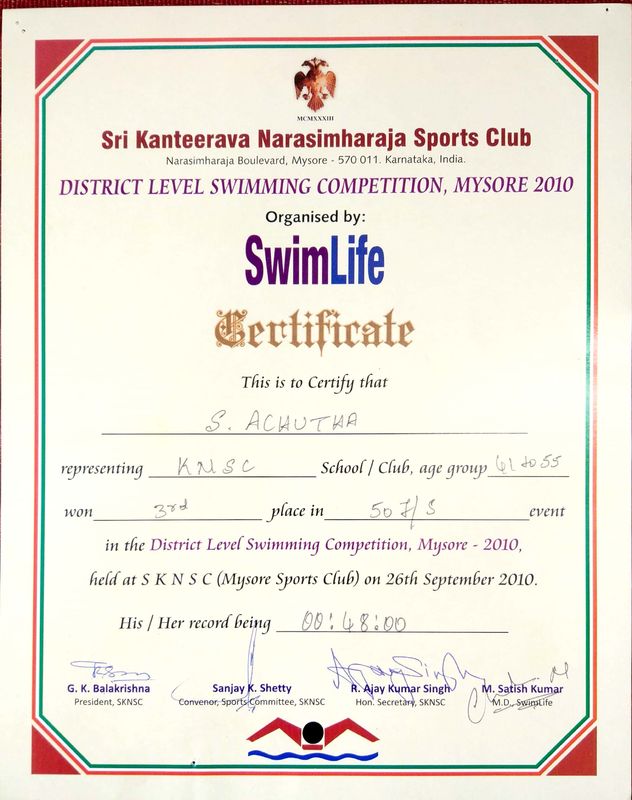 MCMXXXIII
Sri Kanteerava Narasimharaja Sports Club
Narasimharaja Boulevard, Mysore - 570 011. Karnataka, India.
DISTRICT LEVEL SWIMMING COMPETITION, MYSORE 2010
Organised by:
SwimLife
Certificate
This is to Certify that
S. ACHUTHA
representing KNSC School / Club, age group 41 to 55
won 3rd place in 50 F/S event
in the District Level Swimming Competition, Mysore - 2010,
held at S K N S C (Mysore Sports Club) on 26th September 2010.
His / Her record being 00:48:00
G. K. Balakrishna Sanjay K. Shetty R. Ajay Kumar Singh M. Satish Kumar
President, SKNSC Convenor, Sports Committee, SKNSC Hon. Secretary, SKNSC M.D., SwimLife